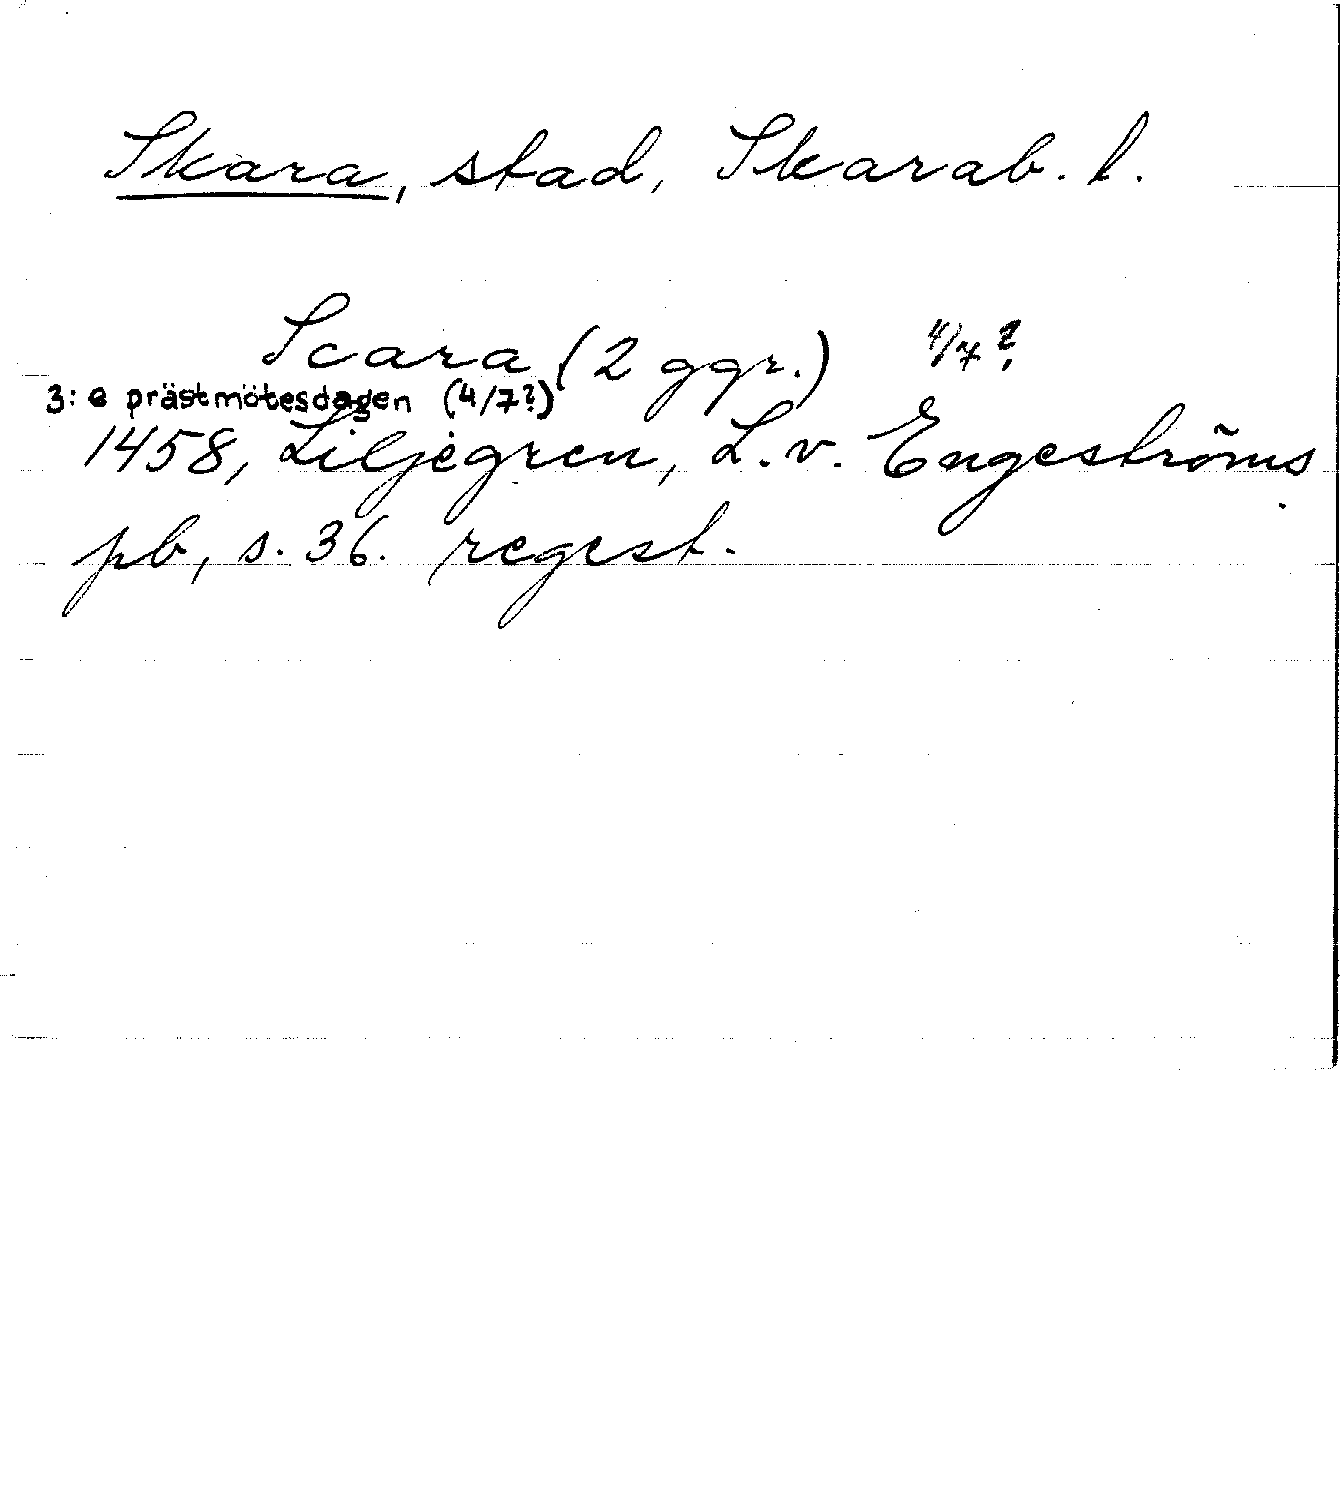 Skara, stad, Skarab. l.
Scara (2 ggr.) 4/7?
3:e prästmötesdagen (4/7?)
1458, Liljegren, L. v. Engeströms
pb, s. 36. regest.